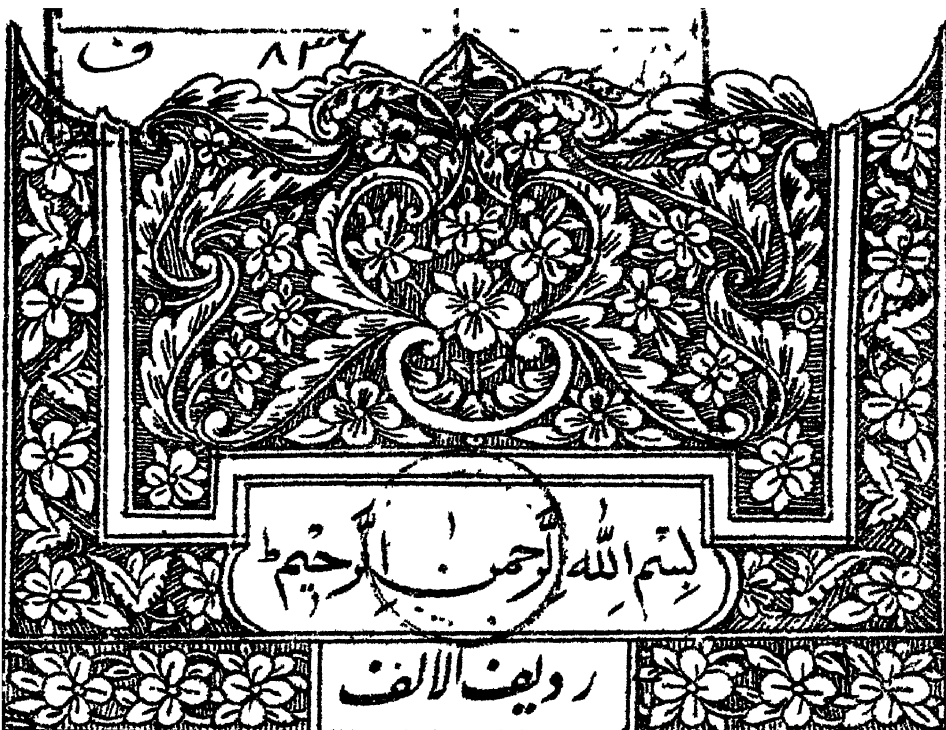 ف ۸۳۶
بِسْمِ اللهِ الرَّحمنِ الرَّحِيْمِ ط
رویف الالف